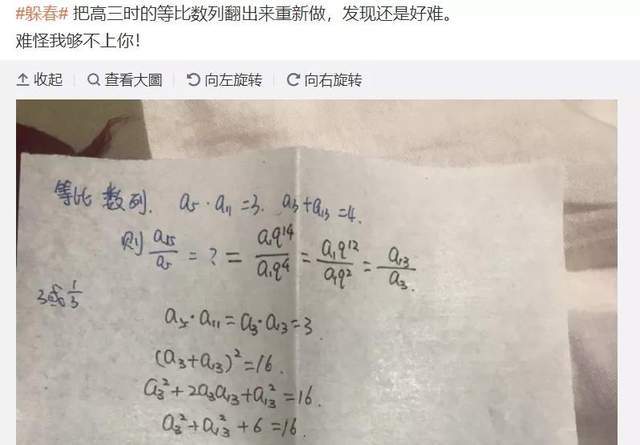 #躲春# 把高三时的等比数列翻出来重新做，发现还是好难。
难怪我够不上你！
收起 查看大圖 向左旋转 向右旋转
等比数列. a₅·a₁₁=3. a₃+a₁₃=4.
则 a₁₅/a₅ = ? = a₁q¹⁴/a₁q⁴ = a₁q¹²/a₁q² = a₁₃/a₃.
3或1/3
a₅·a₁₁=a₃·a₁₃=3.
(a₃+a₁₃)²=16.
a₃²+2a₃a₁₃+a₁₃²=16.
a₃²+a₁₃²+6=16.